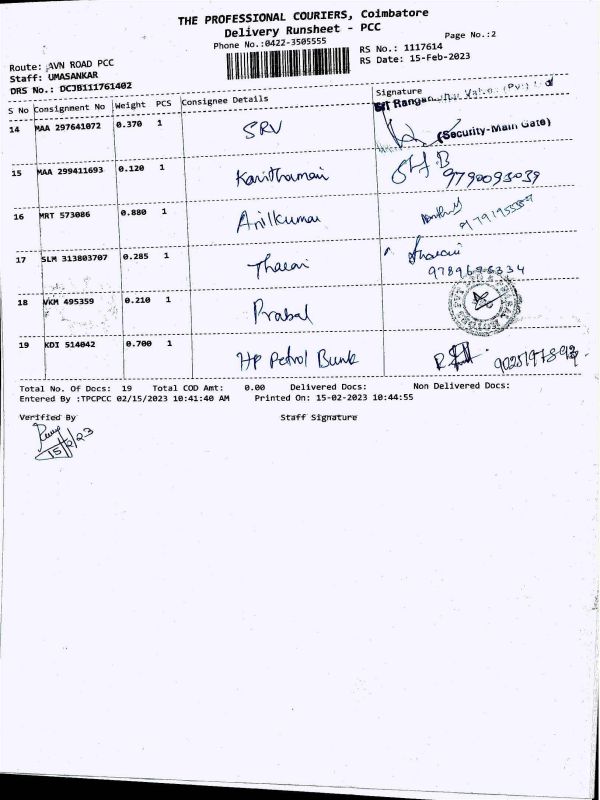 THE PROFESSIONAL COURIERS, Coimbatore
Delivery Runsheet - PCC
Phone No.:0422-3505555
Page No.:2
Route: AVN ROAD PCC
RS No.: 1117614
Staff: UMASANKAR
RS Date: 15-Feb-2023
DRS No.: DCJB111761402
S No Consignment No Weight PCS Consignee Details Signature
14 MAA 297641072 0.370 1 SRV
(Security-Main Gate)
15 MAA 299411693 0.120 1 9790093039
16 MRT 573086 0.880 1 Anilkumar
17 SLM 313803707 0.285 1 Tharani Tharani
9789696334
18 VKM 495359 0.210 1 Prabal
19 KDI 514042 0.700 1 HP Petrol Bunk
Total No. Of Docs: 19 Total COD Amt: 0.00 Delivered Docs: Non Delivered Docs:
Entered By :TPCPCC 02/15/2023 10:41:40 AM Printed On: 15-02-2023 10:44:55
Verified By Staff Signature
15/2/23